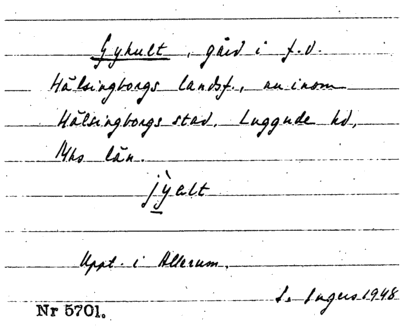 Gyhult, gård i f.d.
Hälsingborgs landsf., nu inom
Hälsingborgs stad, Luggude hd,
Mhs län.
Uppt. i Allerum.
I. Ingers 1948
Nr 5701.